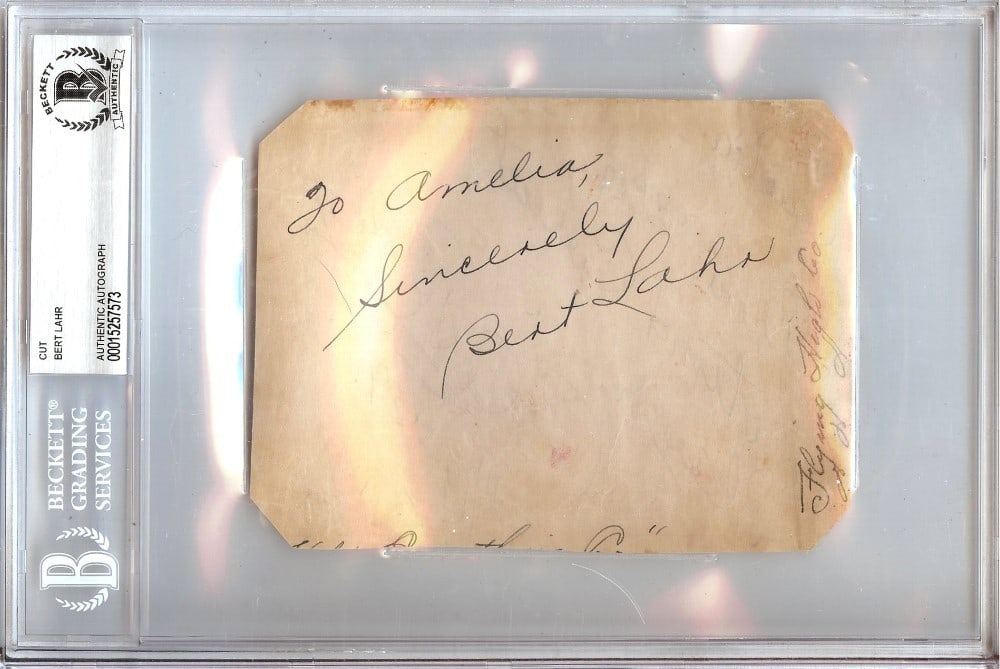 BECKETT
B
AUTHENTIC
CUT
BERT LAHR
AUTHENTIC AUTOGRAPH
00015257573
BECKETT®
GRADING
SERVICES
B
To Amelia,
Sincerely
Bert Lahr
Flying High Co.